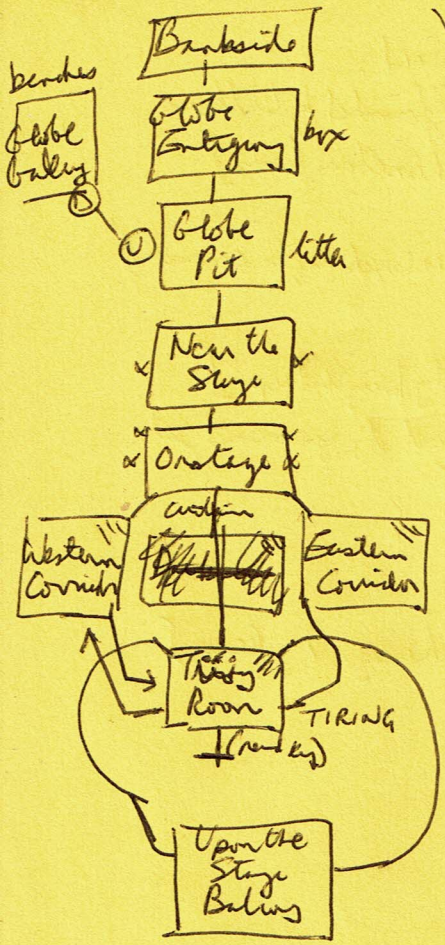 Bankside
benches
Globe
Gallery
D
Globe
Entryway
box
U
Globe
Pit
litter
Near the
Stage
Onstage
Western
Corridor
Eastern
Corridor
Room
TIRING
Upon the
Stage
Balcony